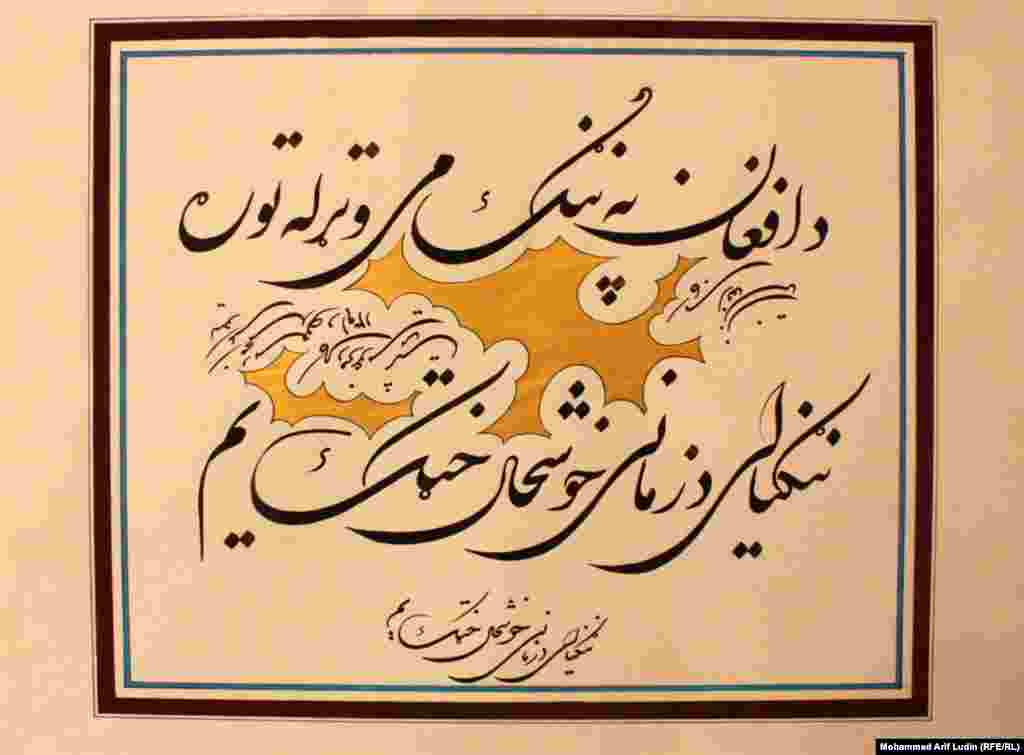 د افغان په ننګ مې وتړله توره
ننګیالی د زمانې خوشحال خټک یم
ننګیالی د زمانې خوشحال خټک یم
Mohammad Arif Ludin (RFE/RL)